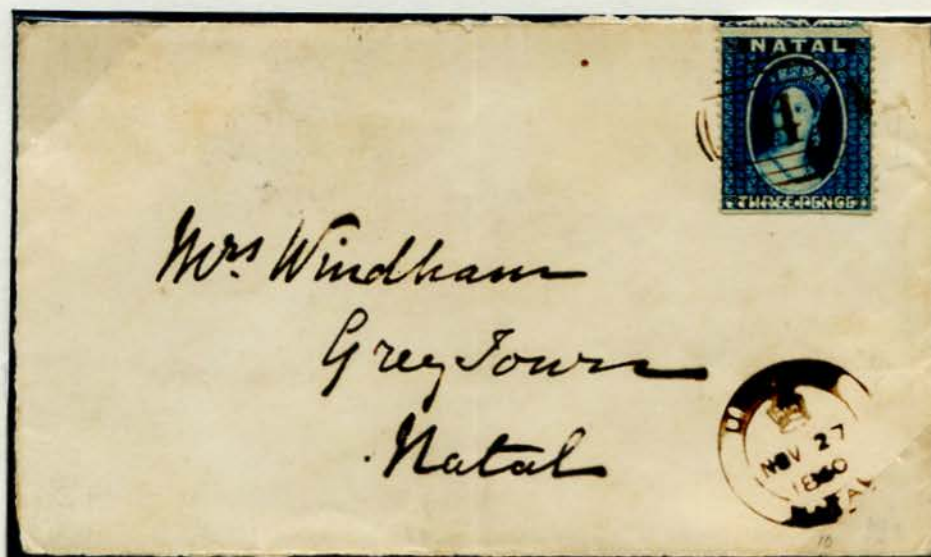 NATAL
4
THREE PENCE
Mrs Windham
Grey Town
Natal
NOV 27
1860
NATAL
10